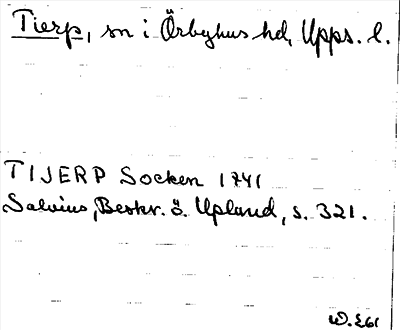 Tierp, sn i Örbyhus hd, Upps. l.
TIJERP Socken 1741
Salvius, Beskr. ö. Upland, s. 321.